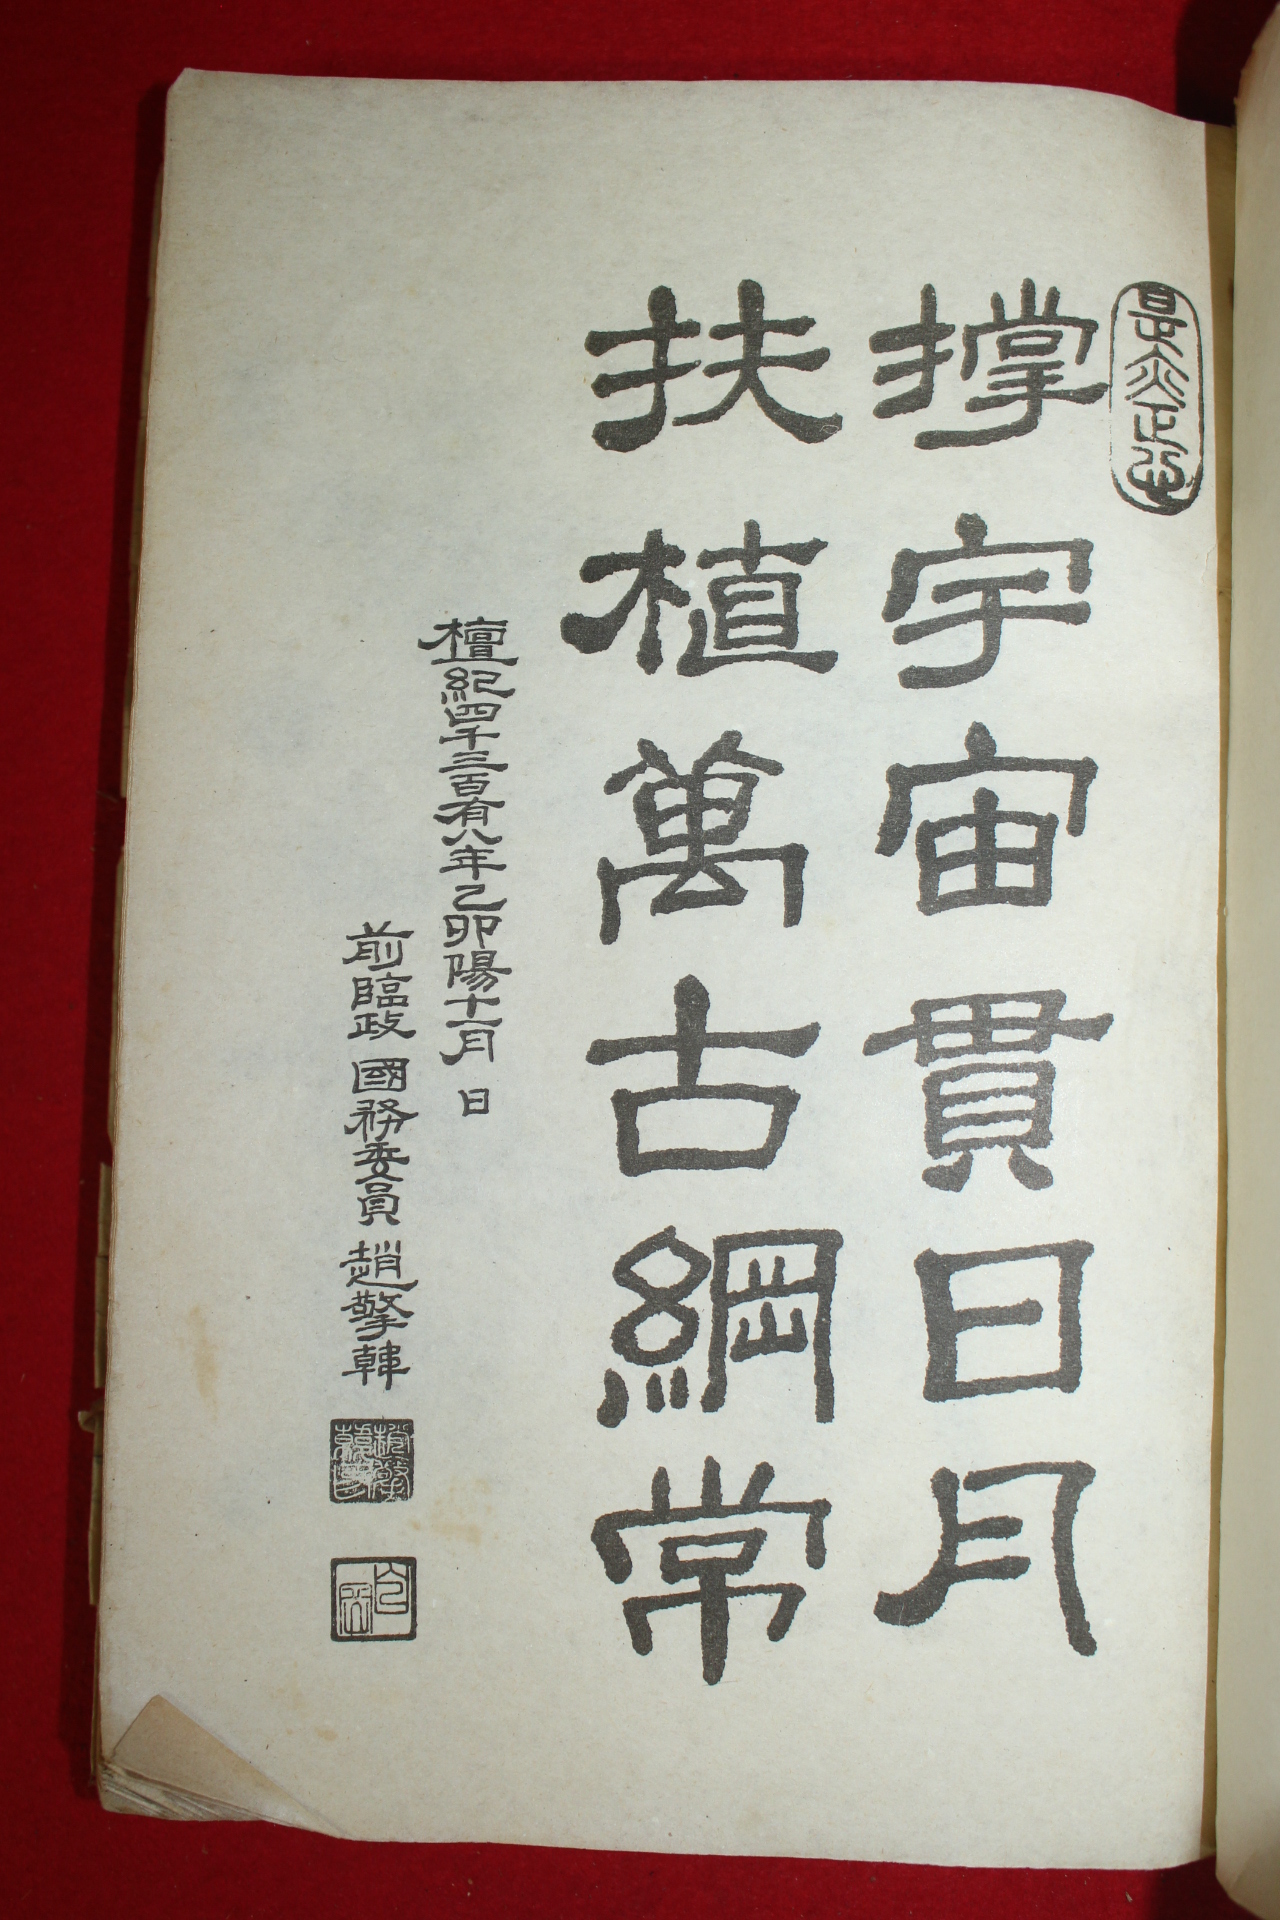 撑宇宙貫日月
扶植萬古綱常
檀紀四千三百有八年乙卯陽十一月 日
前臨政 國務委員 趙擎韓
趙擎韓印
白岡